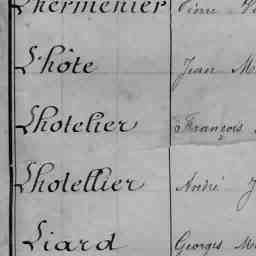 Lhermenier Pierre
Lhôte Jean M
Lhotelier François
Lhotellier André J
Liard Georges M